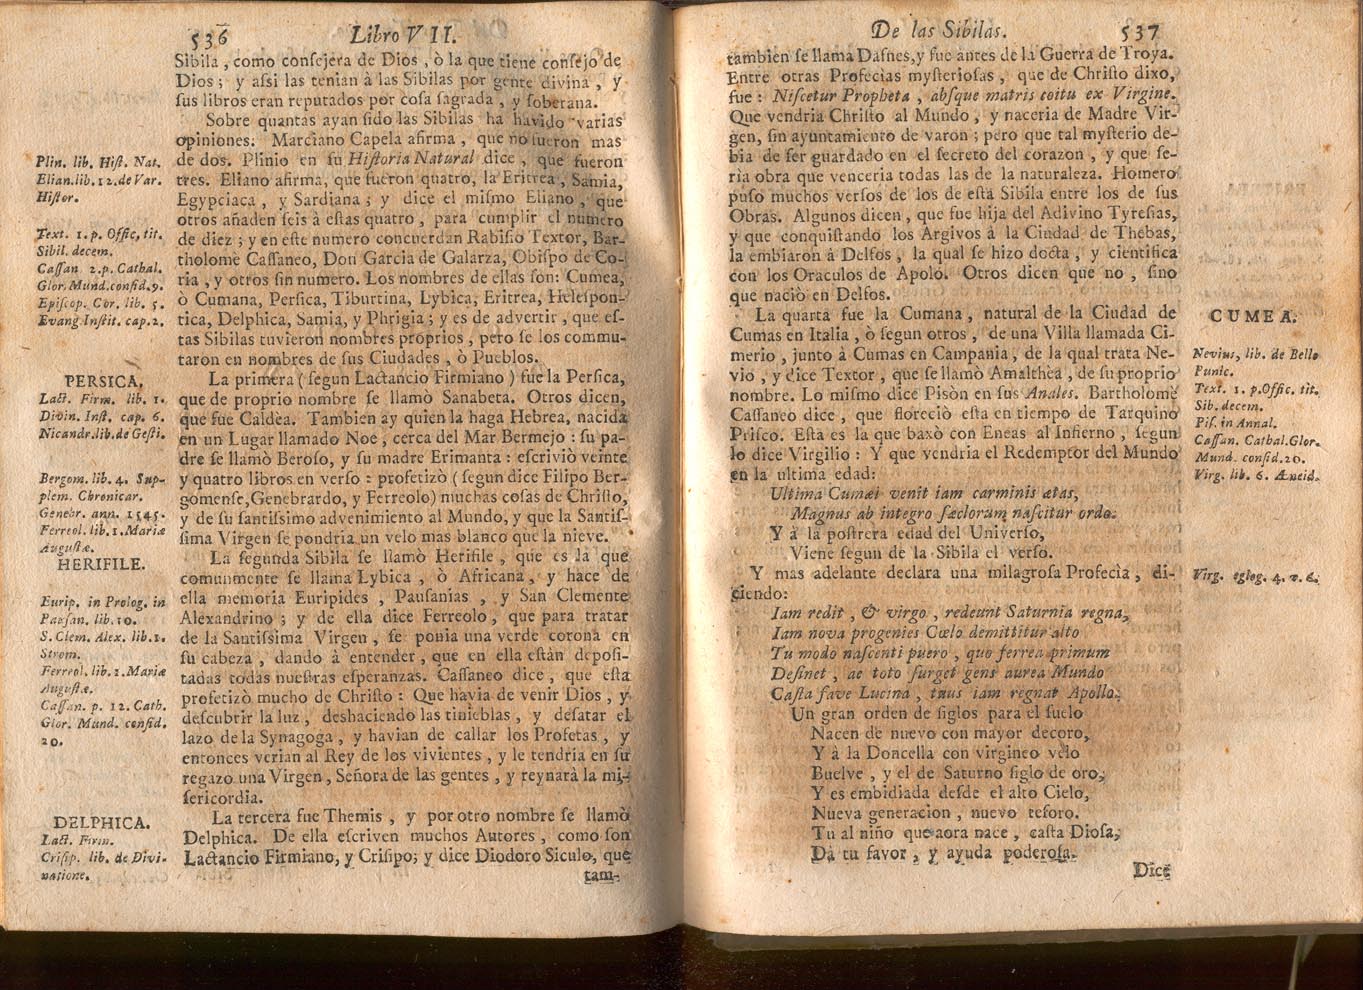 536
Libro VII.
Sibila, como consejera de Dios, ò la que tiene consejo de
Dios; y assi las tenian à las Sibilas por gente divina, y
sus libros eran reputados por cosa sagrada, y soberana.
Sobre quantas ayan sido las Sibilas ha havido varias
opiniones: Marciano Capela afirma, que no fueron mas
de dos. Plinio en su Historia Natural dice, que fueron
tres. Eliano afirma, que fueron quatro, la Eritrea, Samia,
Egypciaca, y Sardiana; y dice el mismo Eliano, que
otros añaden seis à estas quatro, para cumplir el numero
de diez; y en este numero concuerdan Rabisio Textor, Bar-
tholome Cassaneo, Don Garcia de Galarza, Obispo de Co-
ria, y otros sin numero. Los nombres de ellas son: Cumea,
ò Cumana, Persica, Tiburtina, Lybica, Eritrea, Helespon-
tica, Delphica, Samia, y Phrigia; y es de advertir, que es-
tas Sibilas tuvieron nombres proprios, pero se los commu-
taron en nombres de sus Ciudades, ò Pueblos.
La primera (segun Lactancio Firmiano) fue la Persica,
que de proprio nombre se llamò Sanabeta. Otros dicen,
que fue Caldèa. Tambien ay quien la haga Hebrea, nacida
en un Lugar llamado Noe, cerca del Mar Bermejo: su pa-
dre se llamò Beroso, y su madre Erimanta: escriviò veinte
y quatro libros en verso: profetizò (segun dice Filipo Ber-
gomense, Genebrardo, y Ferreolo) muchas cosas de Christo,
y de su santissimo advenimiento al Mundo, y que la Santis-
sima Virgen se pondria un velo mas blanco que la nieve.
La segunda Sibila se llamò Herifile, que es la que
comunmente se llama Lybica, ò Africana, y hace de
ella memoria Euripides, Pausanias, y San Clemente
Alexandrino; y de ella dice Ferreolo, que para tratar
de la Santissima Virgen, se ponia una verde corona en
su cabeza, dando à entender, que en ella estàn deposi-
tadas todas nuestras esperanzas. Cassaneo dice, que esta
profetizò mucho de Christo: Que havia de venir Dios, y
descubrir la luz, deshaciendo las tinieblas, y desatar el
lazo de la Synagoga, y havian de callar los Profetas, y
entonces verian al Rey de los vivientes, y le tendria en su
regazo una Virgen, Señora de las gentes, y reynarà la mi-
sericordia.
La tercera fue Themis, y por otro nombre se llamò
Delphica. De ella escriven muchos Autores, como son
Lactancio Firmiano, y Crisipo; y dice Diodoro Siculo, que
tam-
Plin. lib. Hist. Nat.
Elian. lib. 12. de Var.
Histor.
Text. 1. p. Offic. tit.
Sibil. decem.
Cassan. 2. p. Cathal.
Glor. Mund. consid. 9.
Episcop. Cor. lib. 5.
Evang. Instit. cap. 2.
PERSICA.
Lact. Firm. lib. 1.
Divin. Inst. cap. 6.
Nicandr. lib. de Gesti.
Bergom. lib. 4. Sup-
plem. Chronicar.
Genebr. ann. 1545.
Ferreol. lib. 1. Mariæ
Augustæ.
HERIFILE.
Eurip. in Prolog. in
Pausan. lib. 10.
S. Clem. Alex. lib. 1.
Strom.
Ferreol. lib. 1. Mariæ
Augustæ.
Cassan. p. 12. Cath.
Glor. Mund. consid.
20.
DELPHICA.
Lact. Firm.
Crisip. lib. de Divi-
natione.
De las Sibilas.
537
tambien se llama Dafnes, y fue antes de la Guerra de Troya.
Entre otras Profecias mysteriosas, que de Christo dixo,
fue: Niscetur Propheta, absque matris coitu ex Virgine.
Que vendria Christo al Mundo, y naceria de Madre Vir-
gen, sin ayuntamiento de varon; pero que tal mysterio de-
bia de ser guardado en el secreto del corazon, y que se-
ria obra que venceria todas las de la naturaleza. Homero
puso muchos versos de los de esta Sibila entre los de sus
Obras. Algunos dicen, que fue hija del Adivino Tyresias,
y que conquistando los Argivos à la Ciudad de Thebas,
la embiaron à Delfos, la qual se hizo docta, y cientifica
con los Oraculos de Apolo. Otros dicen que no, sino
que naciò en Delfos.
La quarta fue la Cumana, natural de la Ciudad de
Cumas en Italia, ò segun otros, de una Villa llamada Ci-
merio, junto à Cumas en Campania, de la qual trata Ne-
vio, y dice Textor, que se llamò Amalthea, de su proprio
nombre. Lo mismo dice Pisòn en sus Anales. Bartholomè
Cassaneo dice, que floreciò esta en tiempo de Tarquino
Prisco. Esta es la que baxò con Eneas al Infierno, segun
lo dice Virgilio: Y que vendria el Redemptor del Mundo
en la ultima edad:
Ultima Cumæi venit iam carminis ætas,
Magnus ab integro sæclorum nascitur ordo.
Y à la postrera edad del Universo,
Viene segun de la Sibila el verso.
Y mas adelante declara una milagrosa Profecia, di-
ciendo:
Iam redit, & virgo, redeunt Saturnia regna,
Iam nova progenies Cœlo demittitur alto
Tu modo nascenti puero, quo ferrea primum
Desinet, ac toto surget gens aurea Mundo
Casta fave Lucina, tuus iam regnat Apollo.
Un gran orden de siglos para el suelo
Nacen de nuevo con mayor decoro,
Y à la Doncella con virgineo velo
Buelve, y el de Saturno siglo de oro,
Y es embidiada desde el alto Cielo,
Nueva generacion, nuevo tesoro.
Tu al niño que aora nace, casta Diosa,
Dà tu favor, y ayuda poderosa.
Dice
CUMEA.
Nevius, lib. de Bello
Punic.
Text. 1. p. Offic. tit.
Sib. decem.
Pis. in Annal.
Cassan. Cathal. Glor.
Mund. consid. 20.
Virg. lib. 6. Æneid.
Virg. eglog. 4. v. 6.